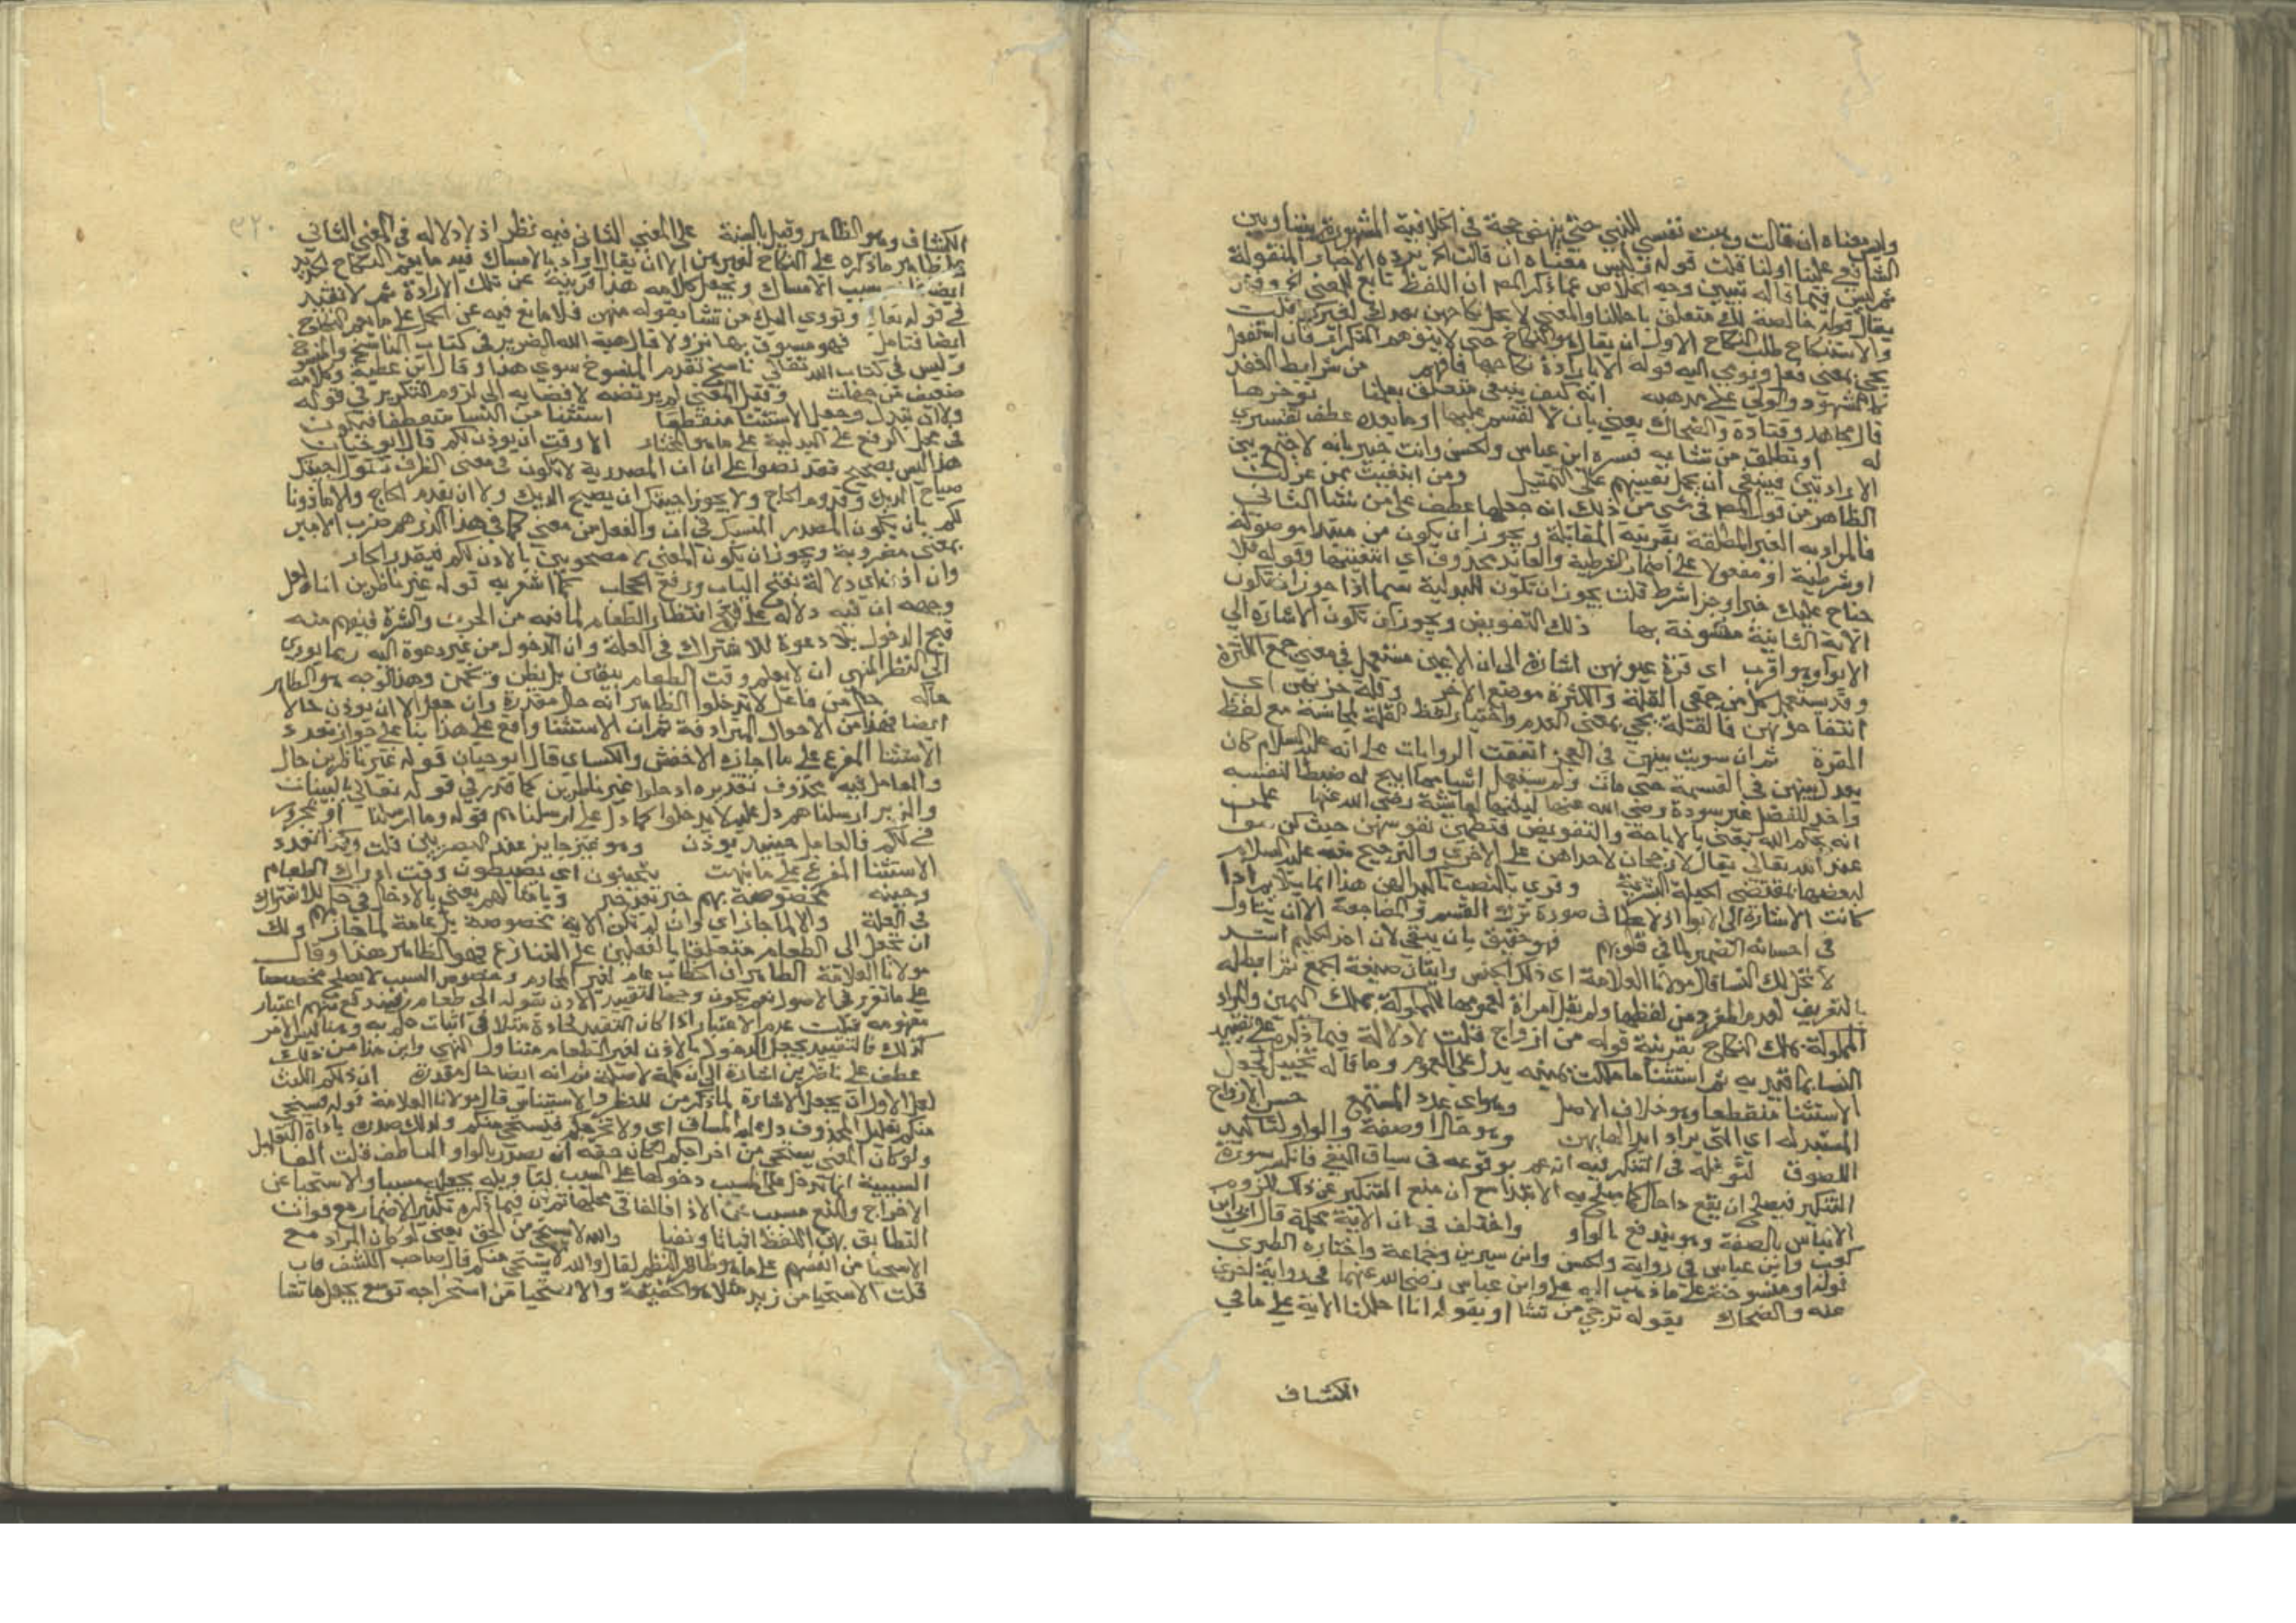 وليس معناه ان قالت وهبت نفسي للنبي حتى ينهض حجة في الخلافية المشهورة بيننا وبين
الشافعي علينا اولنا قلت قوله وليس معناه ان قالت الخ يرده الاخبار المنقولة
ثم ليس فيما قاله تبيين وجه الخلاص عما ذكر المص ان اللفظ تابع للمعنى
يقال قوله خالصة لك متعلق باحللنا والمعنى لا يحل نكاحهن بعدك لغيرك قلت
والاستنكاح طلب النكاح الاولى ان يقال هو النكاح حتى لا يتوهم التكرار فان استفعل
يجي بمعنى فعل ويومي اليه قوله الا بارادة نكاحها فافهم من شرايط العقد
كالشهود والولي على مذهبه انه كيف ينبغي متعلق بعلمنا توخرها
قال مجاهد وقتادة والضحاك يعني بان لا تقسم عليها او ما بعده عطف تفسيري
له او تطلق من تشا به فسره ابن عباس والحسن وانت خبير بانه لا جمع بين
الارادتين فينبغي ان يحمل تفسيرهم على التمثيل ومن ابتغيت ممن عزلت
الظاهر من قول المص في شي من ذلك انه جعلها عطف على من تشا الثاني
فالمراد به الغير المطلقة بقرينة المقابلة ويجوز ان يكون من مبتدا موصولة
او شرطية او مفعولا على اضمار الشرطية والعائد محذوف اي ابتغيتها وقوله فلا
جناح عليك خبر او جزا شرط قلت يجوز ان تكون للبدلية سيما اذا جوز ان تكون
الاية الثانية منسوخة بها ذلك التفويض ويجوز ان تكون الاشارة الى
الايوا وهو اقرب اى قرة عيونهن اشارة الى ان الاعين مستعمل في معنى جمع الكثرة
وقد يستعمل كل من جمعي القلة والكثرة موضع الاخر وقلة حزنهن اى
انتفا حزنهن فالقلة يجي بمعنى العدم واختيار لفظ القلة لمجانسة مع لفظ
القرة ثم ان سويت بينهن في البحر اتفقت الروايات على انه عليه السلام كان
يعدل بينهن في القسمة حتى مات ولم يستعمل شيا مما ابيح له ضبطا لنفسه
واخذ للفضل غير سودة رضي الله عنها ليلتها لعايشة رضي الله عنها علمن
انه بحكم الله يعني بالاباحة والتفويض فتطمئن نفوسهن حيث كن
عند الله تعالى يقال لا رجحان لاحداهن على الاخرى والترجيح منه عليه السلام
لبعضها بمقتضى الجبلة البشرية وقري بالنصب تاكيدا لهن هذا انما يتلايم اذا
كانت الاشارة الى الايوا اذ لا عطا في صورة ترك القسم والمضاجعة الا ان يتاول
في احسانه الضمير لما في قلوبهم فهو حقيق بان يتقي لان اخذ الحليم اشد
لا تحل لك النسا قال مولانا العلامة اى ذكر الجنس واتيان صيغة الجمع ثم ابطله
بالتعريف لعدم المفرد من لفظها ولم يقل امراة لعمومها للمملوكة بملك اليمين والمراد
المملوكة بملك النكاح بقرينة قوله من ازواج قلت لا دلالة فيما ذكره على تقييد
النسا بما قيد به ثم استثنا ما ملكت يمينه يدل على العموم وما قاله تخييل لجعل
الاستثنا منقطعا وهو خلاف الاصل وهو اى عدد المستمع حسن الازواج
المستبدلة اى التي يراد ابدالها بهن وهو حال او صفة والواو لتاكيد
اللصوق لتوغله في التنكير فيه انه عم بوقوعه في سياق النفي فانكسر سورة
التنكير فيصلح ان يقع ذا حال كما يصلح به الابتدا مع ان منع التنكير عن ذلك للزوم
الالتباس بالصفة وهو يندفع بالواو واختلف في ان الاية محكمة قال ابي بن
كعب وابن عباس في رواية والحسن وابن سيرين وجماعة واختاره الطبري
قوله او منسوخة على ما ذهب اليه علي وابن عباس رضي الله عنهما في رواية اخرى
عنه والضحاك بقوله ترجي من تشا او بقوله انا احللنا الاية على ما في
الكشاف
٣٢٠
الكشاف وهو الظاهر وقيل بالسنة على المعنى الثاني فيه نظر اذ لا دلالة في المعنى الثاني
على ظاهر ما ذكره على النكاح لغيرهن الا ان يقال اراد بالامساك فيه ما يعم النكاح الجديد
ايضا بسبب الامساك ويجعل كلامه هذا قرينة عن تلك الارادة ثم لا تقييد
في قوله تعالى وتؤوي اليك من تشا بقوله منهن فلا مانع فيه عن الحمل على ما يعم النكاح
ايضا فتامل فهو مسبوق بها نزولا قال هبة الله الضرير في كتاب الناسخ والمنسوخ
وليس في كتاب الله تعالى ناسخ تقدم المنسوخ سوى هذا وقال ابن عطية وكلامه
ضعيف من جهات وقيل المعنى لم يرتضه لافضايه الى لزوم التكرير في قوله
ولا ان تبدل وجعل الاستثنا منقطعا استثنا من النسا متصلا فيكون
في محل الرفع على البدلية على ما هو المختار الا وقت ان يوذن لكم قال ابو حيان
هذا ليس بصحيح فقد نصوا على ان ان المصدرية لا تكون في معنى الظرف تقول اجيئك
صياح الديك وقدوم الحاج ولا يجوز اجيئك ان يصيح الديك ولا ان يقدم الحاج والا ماذونا
لكم بان يكون المصدر المنسبك في ان والفعل من معنى كما في هذا الدرهم ضرب الامير
بمعنى مضروبة ويجوز ان يكون المعنى الا مصحوبين بالاذن لكم فيقدر الجار
وان اذن اى دلالة بفتح الباب ورفع الحجاب كما اشعر به قوله غير ناظرين اناه لعل
وجهه ان فيه دلالة على قبح انتظار الطعام لما فيه من الحرص والشره فيفهم منه
قبح الدخول بلا دعوة للاشتراك في العلة وان الدخول من غير دعوة اليه ربما يودي
الى التنظر المنهي ان لا يعلم وقت الطعام بيقين بل بظن وتخمين وهذا الوجه هو الظاهر
حاله حال من فاعل لا تدخلوا الظاهر انه حال مقدرة وان جعل الا ان يوذن حالا
ايضا فهذا من الاحوال المترادفة ثم ان الاستثنا واقع على هذا بنا على جواز تعدد
الاستثنا المفرغ على ما اجازه الاخفش والكساي قال ابو حيان قوله غير ناظرين حال
والعامل فيه محذوف تقديره ادخلوا غير ناظرين كما قدر في قوله تعالى بالبينات
والزبر ارسلناهم دل عليه لا يدخلوا كما دل على ارسلناهم قوله وما ارسلنا او المجرور
في لكم فالعامل حينئذ يوذن وهو غير جايز عند البصريين قلت وكذا تعدد
الاستثنا المفرغ على ما بينت يتحينون اى يضبطون وقت ادراك الطعام
وحينه مخصوصة بهم خبر بعد خبر وبامثالهم يعني بالادخال في حكم للاشتراك
في العلة والا لما جاز اى وان لم تكن الاية مخصوصة بل عامة لما جاز ولك
ان تجعل الى الطعام متعلقا بالفعلين على التنازع فهو الظاهر هذا وقال
مولانا العلامة الظاهر ان الخطاب عام لغير المحارم وخصوص السبب لا يصلح مخصصا
على ما تقرر في الاصول نعم يكون وجها لتقييد الاذن بقوله الى طعام فيندفع وهم اعتبار
مفهومه قلت عدم الاعتبار اذا كان التقييد لحادثة مثلا في اثبات حكم به وهنا ليس الامر
كذلك فالتقييد يجعل الدخول بالاذن لغير الطعام متناول النهي واين هذا من ذلك
عطف على ناظرين اشارة الى ان كلمة لا صلة ثم انه ايضا حال مقدرة ان ذلكم اللبث
لعل الاولى ان يجعل الاشارة لما ذكر من النظر والاستيناس قال مولانا العلامة قوله فيستحي
منكم تعليل المحذوف دل عليه المساق اى ولا تخرجكم فيستحي منكم ولذلك صدره باداة التعليل
ولو كان المعنى يستحي من اخراجكم لكان حقه ان يصدر بالواو العاطف قلت الفا
السببية انما تدخل على المسبب دخولها على السبب بتاويله بجعله مسببا والاستحيا عن
الاخراج والمنع مسبب عن الاذى فالفا في محلها ثم ان فيما ذكره تكثير الاضمار مع فوات
التطابق بين اللفظ اثباتا ونفيا والله لا يستحي من الحق يعني لو كان المراد مح
الاستحيا من انفسهم على ما هو ظاهر النظم لقال والله لا يستحي منكم قال صاحب الكشف فان
قلت الاستحيا من زيد مثلا هو الحقيقة والاستحيا من استخراجه توسع بجعلها تشا